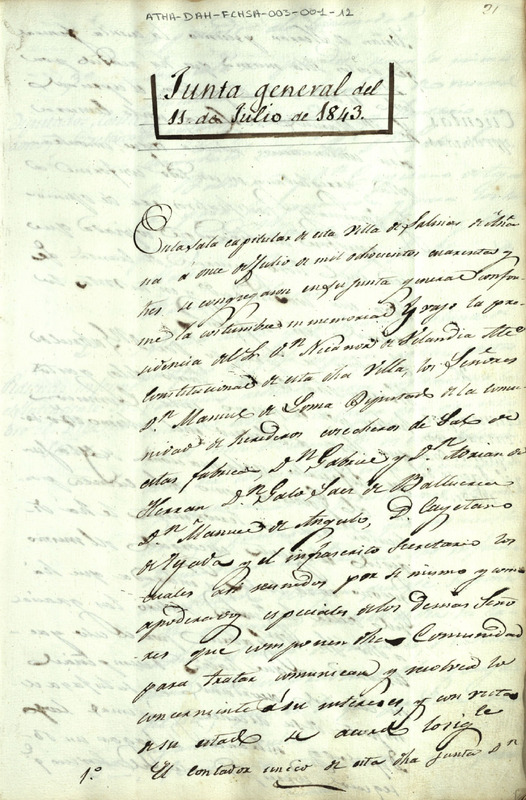 ATHA-DAH-FCHSA-003-001-12
21
Junta general del
11 de Julio de 1843.
En la Sala capitular de esta Villa de Salinas de Aña
na á once de Julio de mil ochocientos cuarenta y
tres se congregaron en su junta general confor
me la costumbre inmemorial y vajo la pre
sidencia del Sr. Dn. Nicanor de Velandia Alce
Constitucional de esta dha Villa, los Señores
Dn. Manuel de Loma Diputado de la comu
nidad de herederos cosecheros de Sal de
estas fabricas Dn. Gabriel y Dn. Adrian de
Herran Dn. Galo Saez de Balluerca
Dn. Manuel de Angulo, D. Cayetano
de Tejada y el infrascrito Secretario los
cuales así reunidos por si mismo y como
apoderados especiales de los demas Seño
res que componen dha Comunidad
para tratar comunicar y resolver lo
concerniente á sus intereses, y con vista
de su estado se acordó lo sigte
1.º El contador unico de esta dha junta Dn